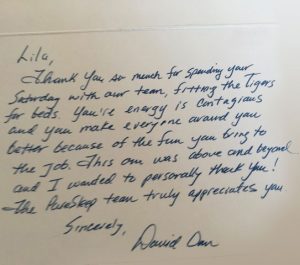 Lila,
Thank you so much for spending your
Saturday with our team, fitting the Tigers
for beds. You're energy is contagious
and you make everyone around you
better because of the fun you bring to
the job. This one was above and beyond
and I wanted to personally thank you!
The PureSleep team truly appreciates you
Sincerely,
David